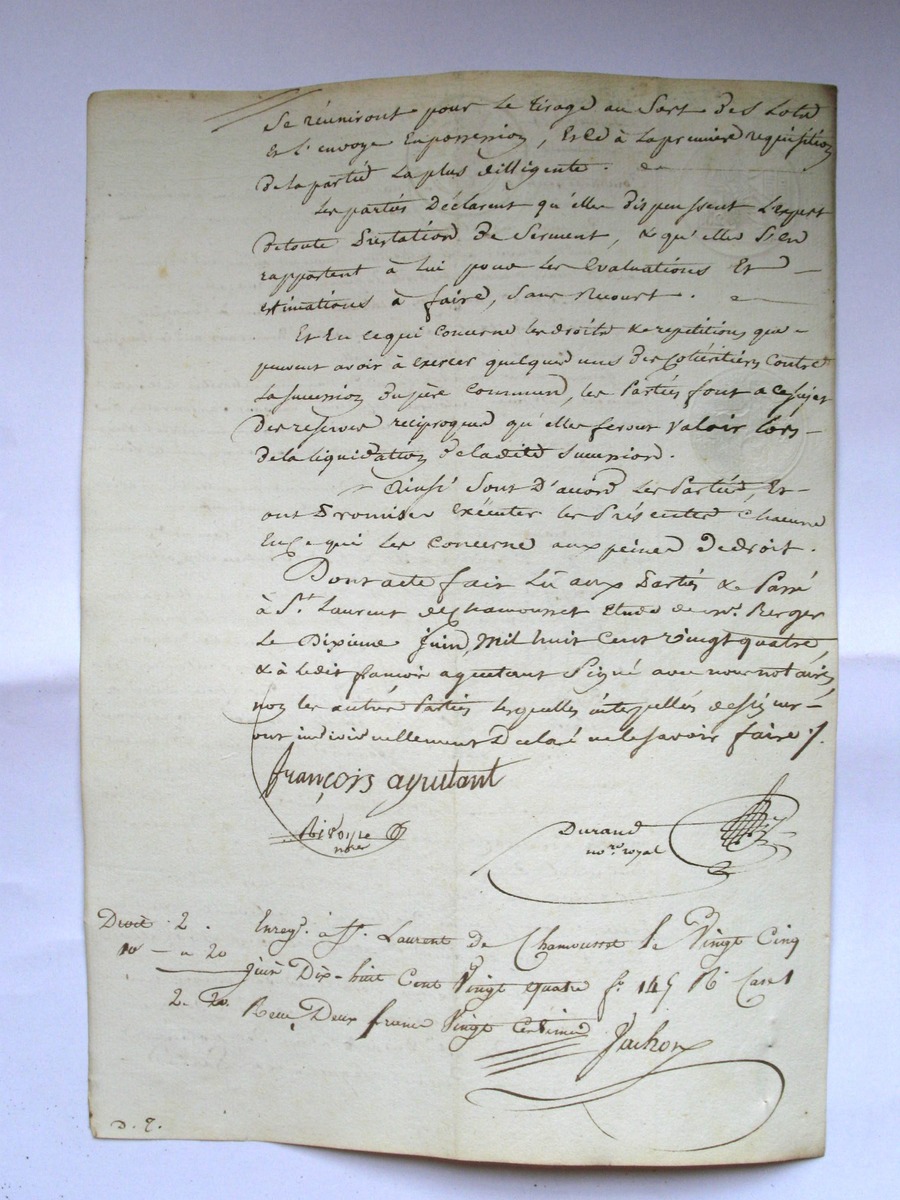 Se réuniront pour le tirage au Sort des Lots
Et l'envoye Enpossession, Et ce à La premiere requisition
de la partie La plus dilligente.
Les parties Déclarent qu'elles dispenssent L'expert
detoute Prestation de Serment, & qu'elles S'En
rapportent à lui pour les Evaluations Et
estimations à faire, Sans Recourt.
Et En cequi Concerne les droits & repetitions que
peuvent avoir à Exercer quelques uns des Cohéritiers Contre
La succession du père Commun, les Parties font a ce sujet
Des reserves réciproques qu'elles feront Valoir lors
de la liquidation de ladite Succession.
Ainsi Sont D'accord les Parties, Et
ont Promis exécuter les Présentes Chacune
En Ce qui les Concerne aux peines De droit.
Dont acte fait Lû aux Parties & Passé
à St. Laurent de Chamousset Etude de Me. Berger
Le Dixieme Juin, Mil huit Cent Vingt quatre,
& à ledit françois aguetant Signé avec nous notaires
non les autres Parties lesquelles interpellées de signer
ont individuellement Déclaré ne le savoir faire ./.
françois agutant
Durand
nore royal
Droit 2. Enregé. à St. Laurent de Chamousset le Vingt Cinq
10e — " 20 Juin Dix-huit Cent Vingt quatre fo. 145 Ro Case 1
2. 20. Recu Deux francs Vingt Centimes
Jachon
D. E.